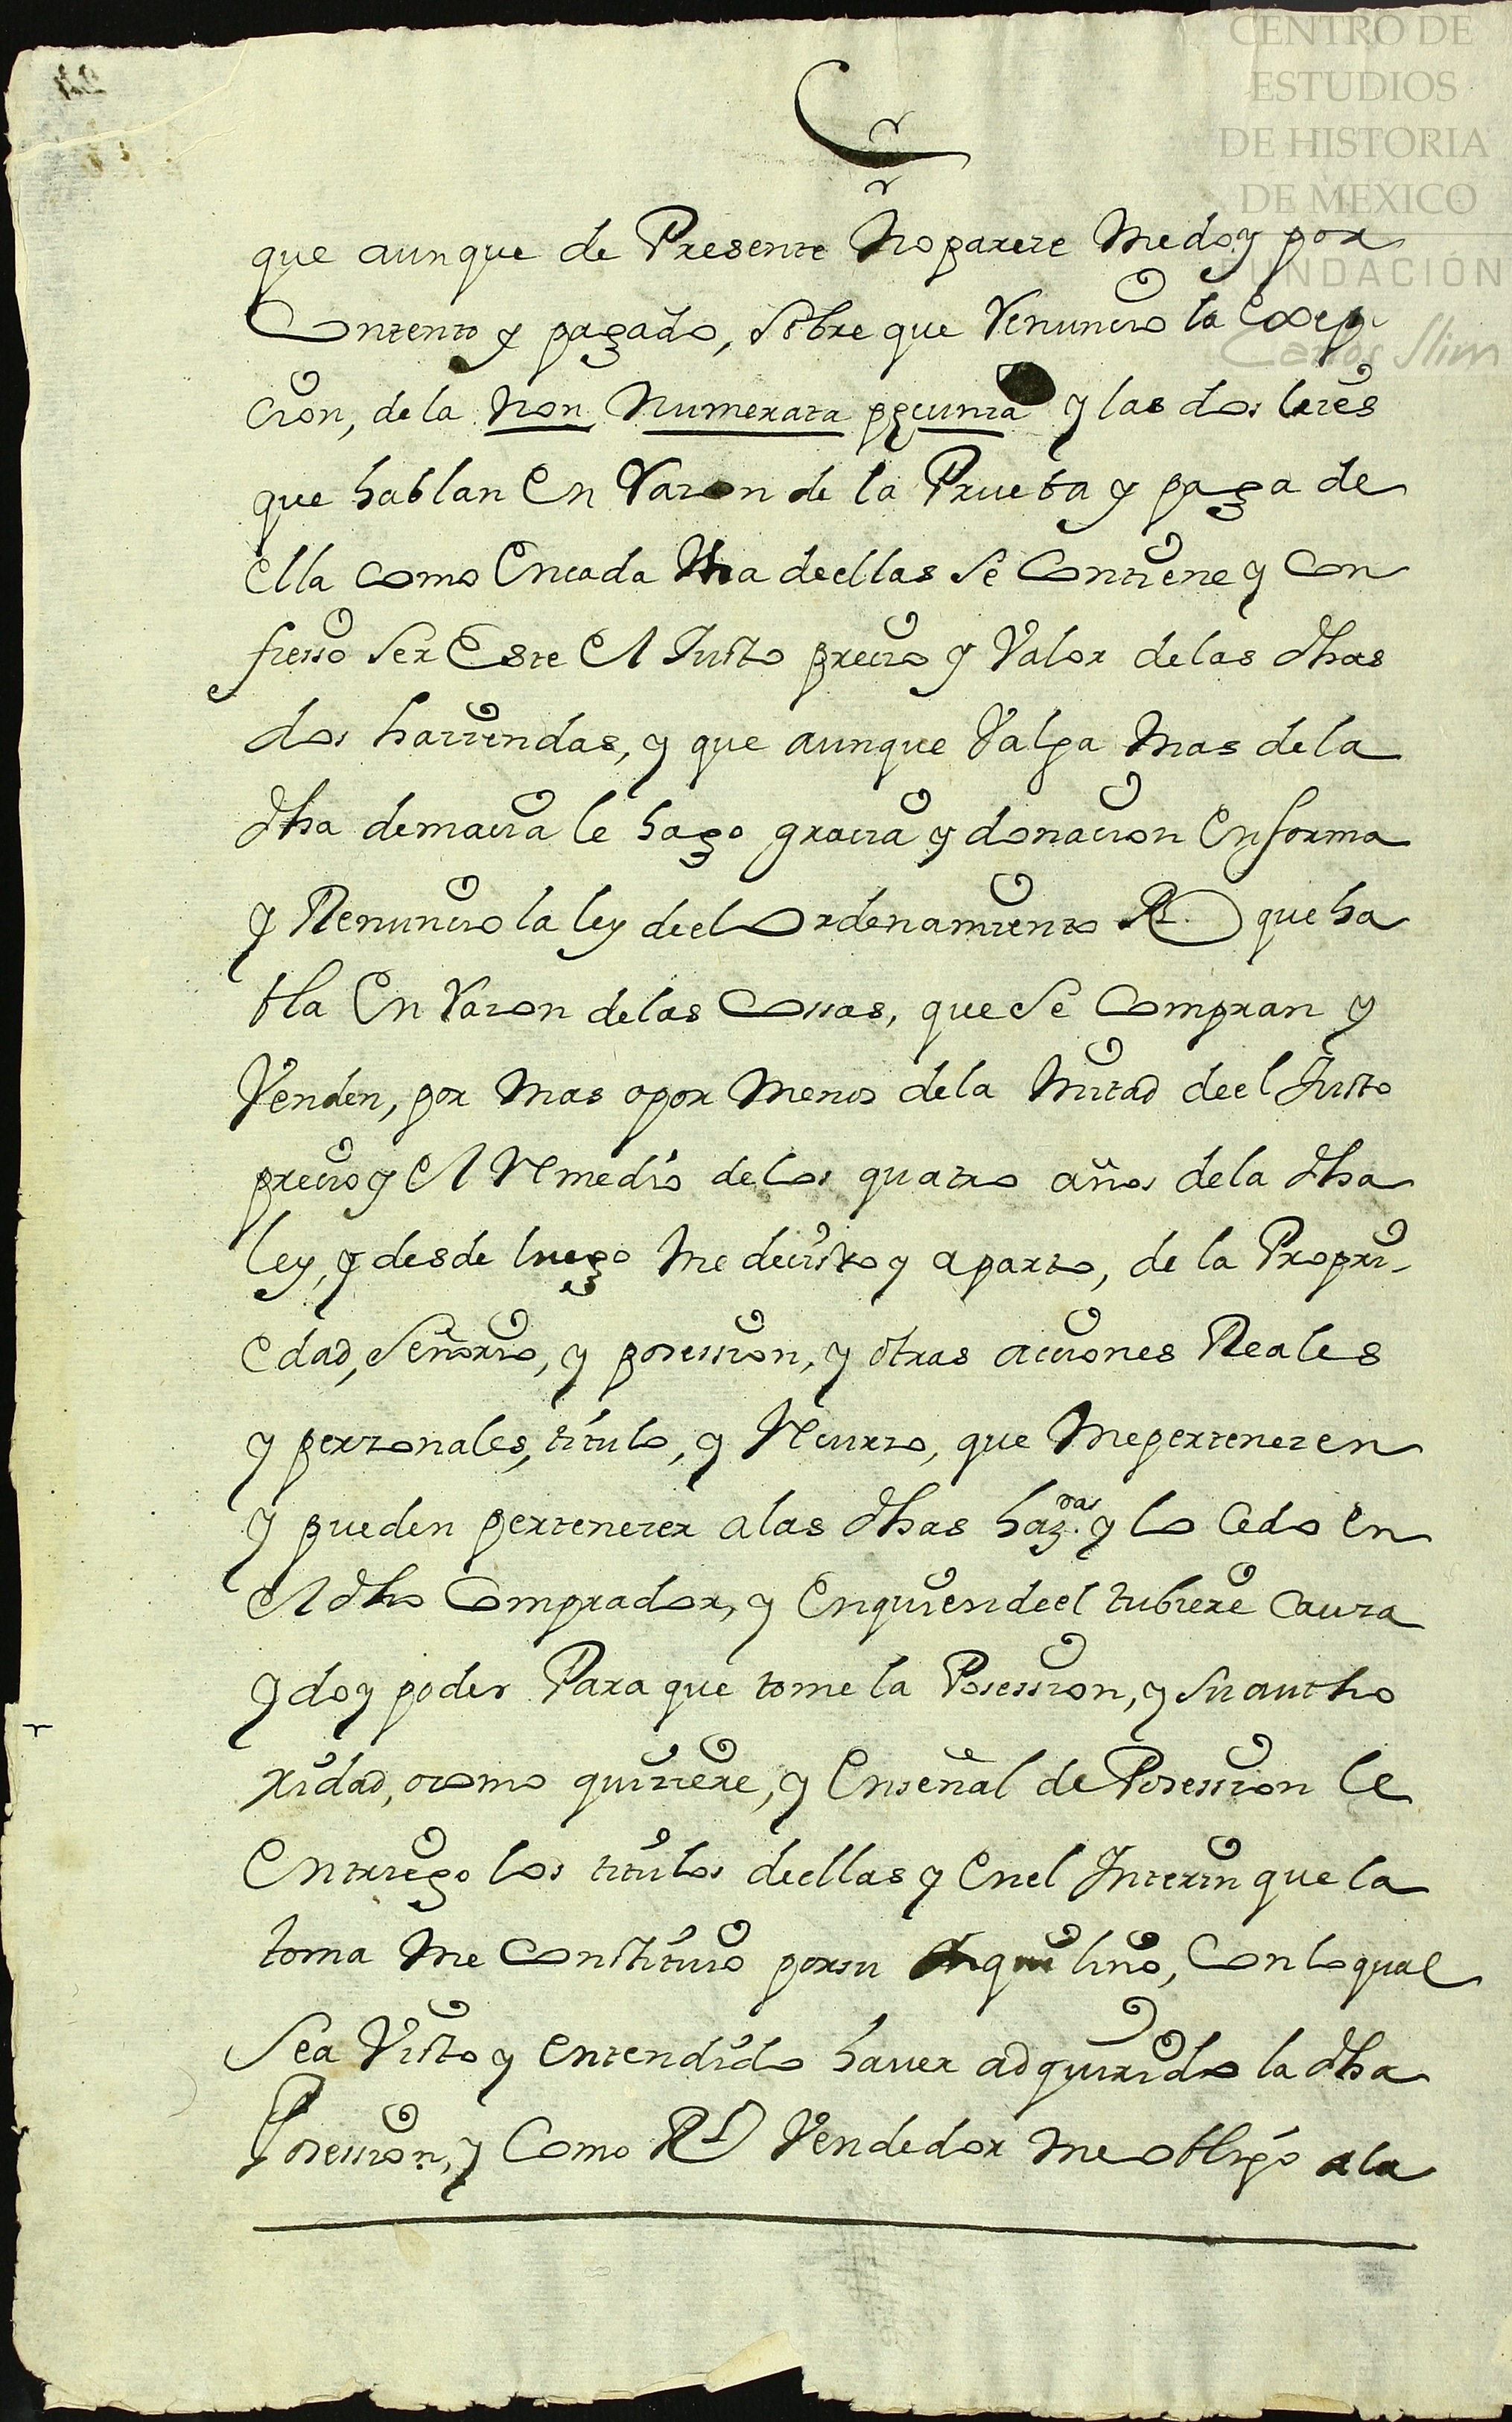 CENTRO DE
ESTUDIOS
DE HISTORIA
DE MEXICO
FUNDACIÓN
Carlos Slim
que aunque de Presente No parece Me doy por
Contento y pagado, sobre que Renuncio la Exsep-
cion, de la Non Numerata pecunia y las dos leies
que hablan En Razon de la Prueba y paga de
ella como En cada Vna de ellas se Contiene y Con
fiesso ser Este El Justo precio y Valor de las dhas
dos haciendas, y que aunque Valga Mas de la
dha demacia le hago gracia y donacion En forma
y Renuncio la ley de el Ordenamiento Rl. que ha
bla En Razon de las Cossas, que se Compran y
Venden, por Mas o por Menos de la Mitad de el Justo
precio y El Remedio de los quatro años de la dha
ley, y desde luego Me decisto y aparto, de la Propri-
edad, Señorio, y posession, y otras acciones Reales
y perzonales, titulo, y Recurzo, que Me pertenezen
y pueden pertenezer a las dhas haz.das y lo Cedo En
El dho Comprador, y En quien de el tubiere Cauza
y doy poder Para que tome la Posession, y Su autho
ridad, o como quiziere, y En señal de Posession le
Entriego los titulos de ellas y En el Interin que la
toma Me Constituio por su Inquilino, Con lo qual
Sea Visto y Entendido hauer adquirido la dha
Posession, y Como Rl Vendedor Me obligo a la